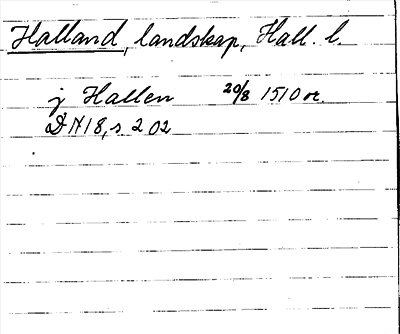 Halland, landskap, Hall. l.
j Hallen 20/8 1510 or.
DN 18, s 202